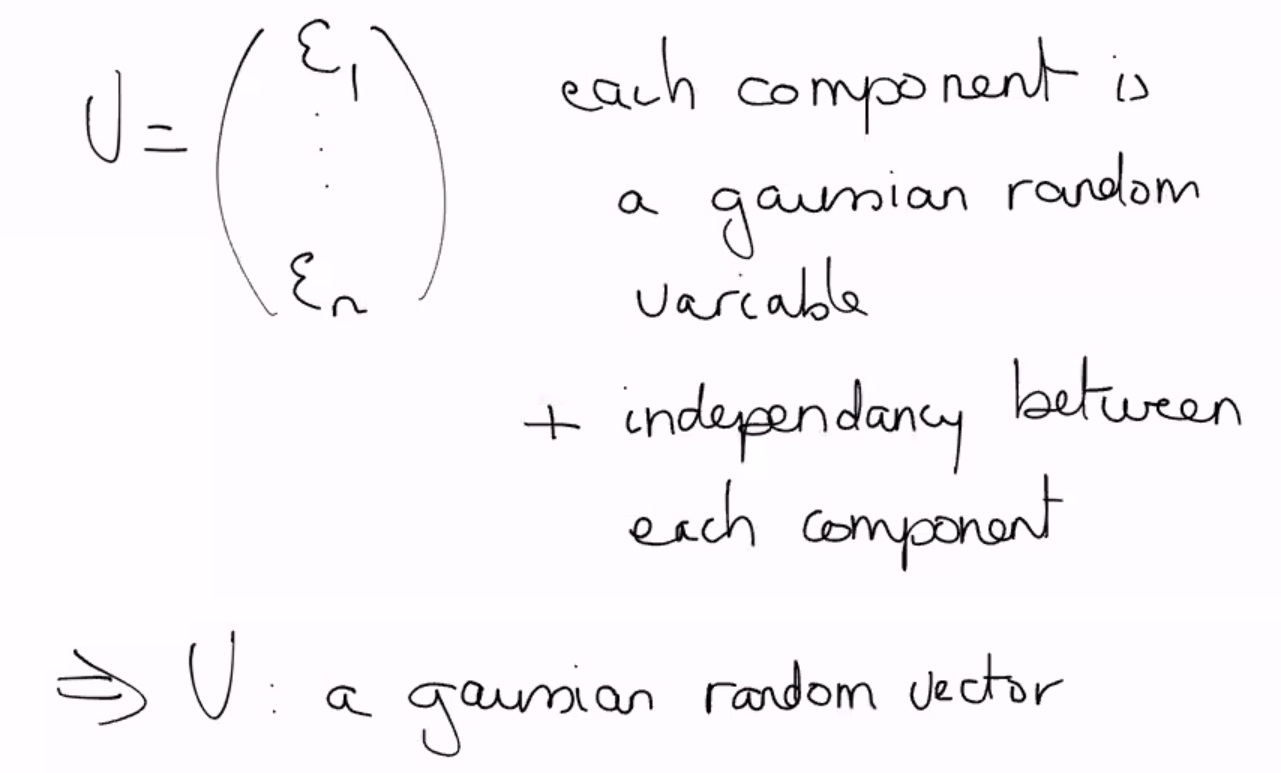 U = ( ε₁ ⋮ εₙ ) each component is
a gaussian random
variable
+ independancy between
each component
⇒ U : a gaussian random vector